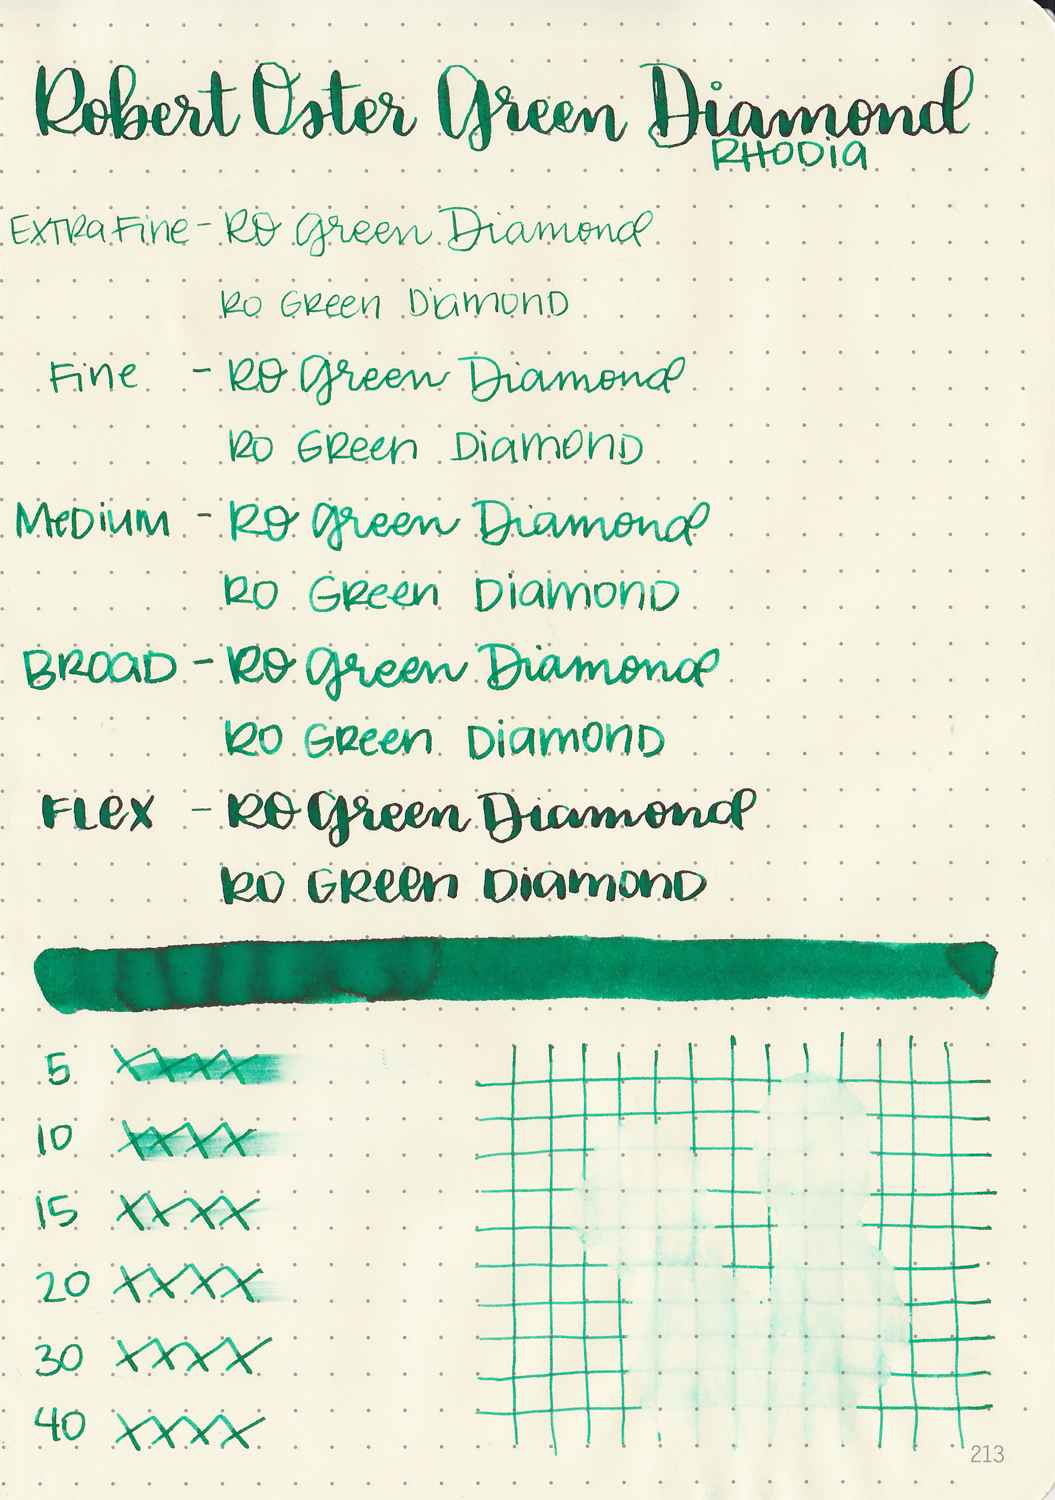 Robert Oster Green Diamond
RHODIA
Extra Fine - RO Green Diamond
RO Green Diamond
Fine - RO Green Diamond
RO Green Diamond
Medium - RO Green Diamond
RO Green Diamond
Broad - RO Green Diamond
RO Green Diamond
Flex - RO Green Diamond
RO Green Diamond
5 XXXX
10 XXXX
15 XXXX
20 XXXX
30 XXXX
40 XXXX
213